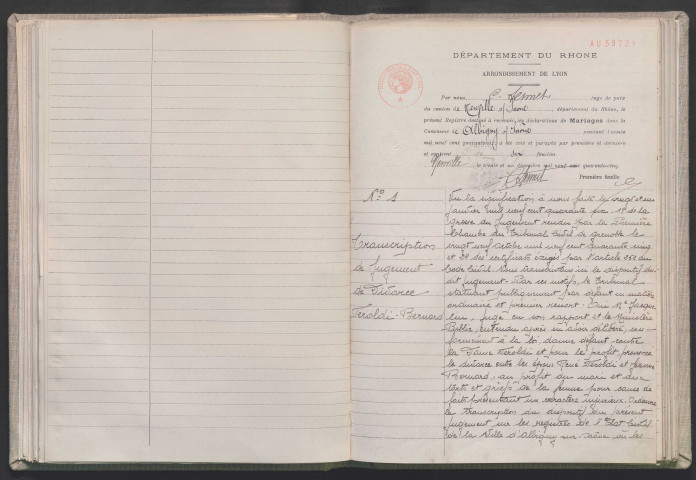 AU 5972
DÉPARTEMENT DU RHONE
ARRONDISSEMENT DE LYON
Par nous, juge de paix
du canton de Neuville s/ Saône, département du Rhône, le
présent Registre destiné à recevoir les déclarations de Mariages dans la
Commune de Albigny s/ Saône pendant l'année
mil neuf cent quarante a été coté et paraphé par première et dernière
et contient dix feuillets
Neuville, le trente et un décembre mil neuf cent quarante-cinq
Première feuille
N° 1
Transcription
de Jugement
de Divorce
Feroldi-Bernard
Vu la signification à nous faite le vingt et un
Janvier mil neuf cent quarante six 1° de la
grosse du Jugement rendu par la Première
Chambre du Tribunal Civil de Grenoble le
vingt neuf octobre mil neuf cent quarante cinq
et 2° des certificats exigés par l'article 252 du
Code Civil. Nous transcrivons ici le dispositif du
dit jugement. Par ces motifs, le Tribunal
statuant publiquement par défaut en matière
ordinaire et premier ressort. Oui Mr
juge en son rapport et le Ministère
Public, entendu après en avoir délibéré, con-
formément à la loi, donne défaut contre
la Dame Feroldi et pour le profit, prononce
le divorce entre les époux René Feroldi et
Bernard, au profit du mari et aux
torts et griefs de la femme pour cause de
faits présentant un caractère injurieux. Ordonne
la transcription du dispositif du présent
jugement sur les registres de l'Etat Civil
de la Ville d'Albigny sur Saône où les